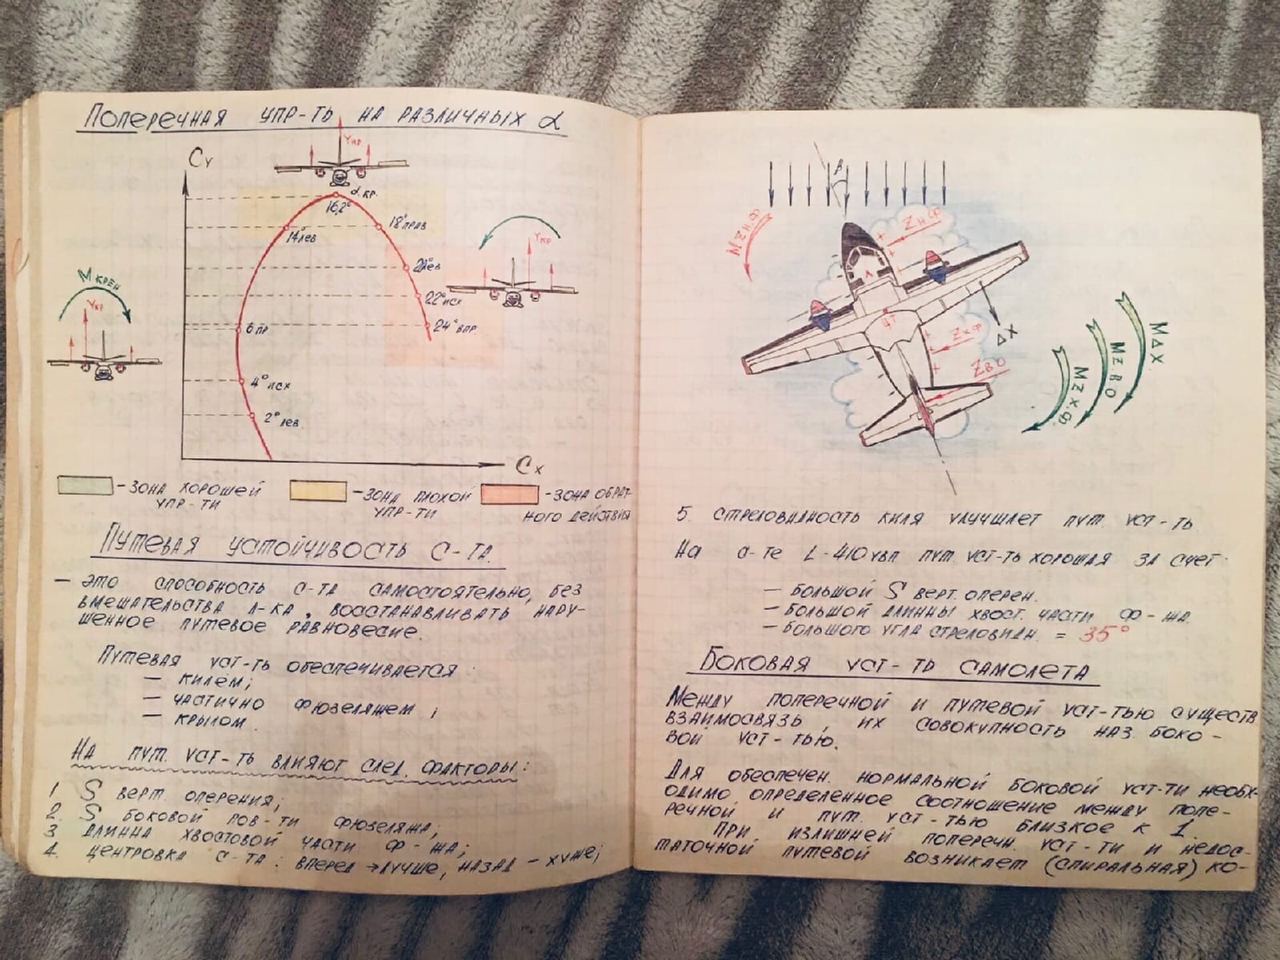 Поперечная упр-ть на различных α
Cу
Yкр
α кр.
16,2°
14°лев
18°прав
Yкр
Mкрен
Yкр
22°исх
6 пр
24° впр
4° исх
2° лев
Cх
- зона хорошей
упр-ти
- зона плохой
упр-ти
- зона обрат-
ного действия
Путевая устойчивость с-та.
- это способность с-та самостоятельно, без
вмешательства л-ка, восстанавливать нару-
шенное путевое равновесие.
Путевая уст-ть обеспечивается:
- килем;
- частично фюзеляжем,
- крылом.
На пут. уст-ть влияют след. факторы:
1 S верт. оперения;
2. S боковой пов-ти фюзеляжа;
3 длинна хвостовой части ф-жа;
4. центровка с-та: вперед → лучше, назад - хуже;
β
MZн.ф.
Zн.ф
л
цт
ΔX
Zх.ф
Zво
MΔX.
MZво
MZх.ф.
5. стреловидность киля улучшлет пут уст-ть
На с-те L-410увп пут. уст-ть хорошая за счет:
- большой S верт. оперен.
- большой длинны хвост. части ф-жа.
- большого угла стреловидн. = 35°
Боковая уст-ть самолета
Между поперечной и путевой уст-тью существ
взаимосвязь, их совокупность наз. боко-
вой уст-тью.
Для обеспечен. нормальной боковой уст-ти необх-
одимо определенное соотношение между попе-
речной и пут. уст-тью близкое к 1.
При излишней поперечн. уст-ти и недос-
таточной путевой возникает (спиральная) ко-